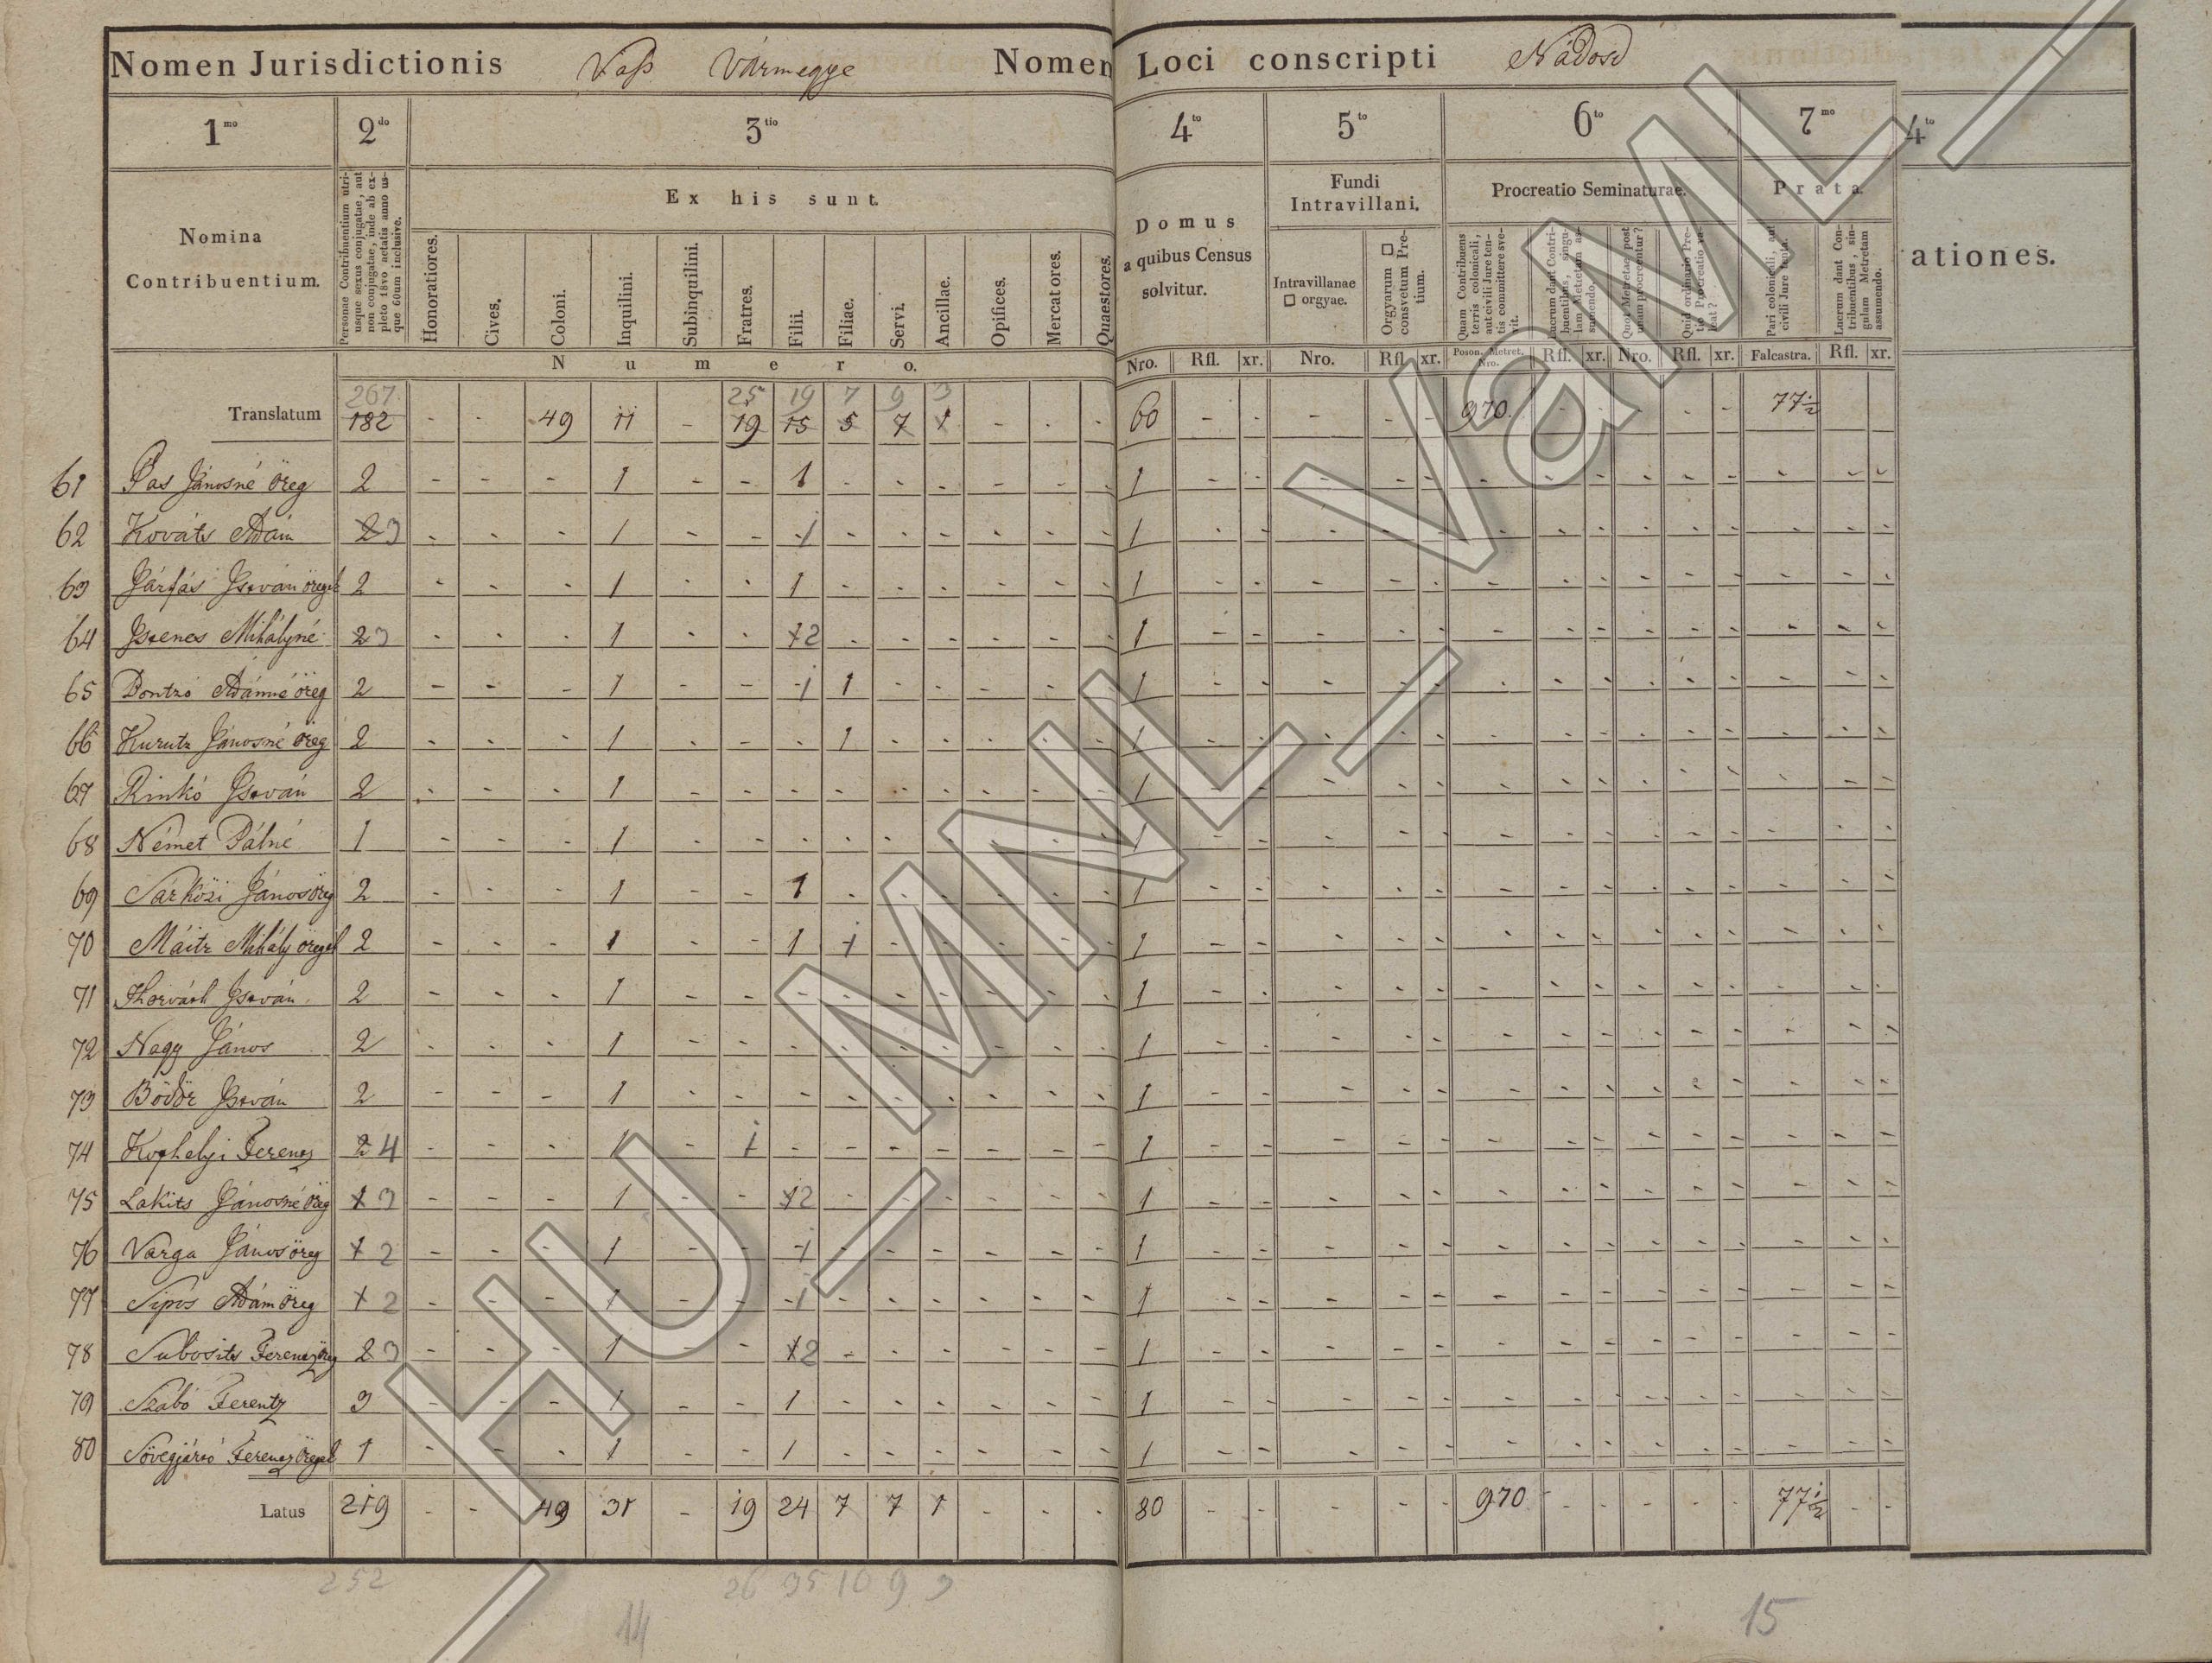 Nomen Jurisdictionis Vaß Vármegye Nomen Loci conscripti Nádosd
1mo 2do 3tio 4to 5to 6to 7mo 4to
Nomina Contribuentium.
Personae Contribuentium utriusque sexus conjugatae, aut non conjugatae, inde ab expleto 18vo aetatis anno usque 60um inclusive.
Ex his sunt.
Honoratiores. Cives. Coloni. Inquilini. Subinquilini. Fratres. Filii. Filiae. Servi. Ancillae. Opifices. Mercatores. Quaestores.
Numero.
Domus a quibus Census solvitur.
Nro. Rfl. xr.
Fundi Intravillani.
Intravillanae □ orgyae.
Orgyarum □ consvetum Pretium.
Nro. Rfl. xr.
Procreatio Seminaturae.
Quam Contribuens terris colonicali, aut civili Jure tentis committere svevit.
Lucrum dant Contribuentibus, singulam Metretam assumendo.
Quot Metretae post unam procreentur?
Quid ordinario Pretio Procreatio valeat?
Poson. Metret. Nro. Rfl. xr. Nro. Rfl. xr.
Prata.
Pari colonicali, aut civili Jure tenta.
Lucrum dant Contribuentibus, singulam Metretam assumendo.
Falcastra. Rfl. xr.
ationes.
267 25 19 7 9 3
Translatum 182 - - 49 11 - 19 15 5 7 1 - - - 60 - - - - - 970 - - - - - 77½
61 Pas Jánosné öreg 2 - - - 1 - - 1 - - - - - - 1
62 Kováts Ádám 2 3 - - - 1 - - 1 - - - - - - 1
63 Járfás István öregeb 2 - - - 1 - - 1 - - - - - - 1
64 Istenes Mihályné 2 3 - - - 1 - - 1 2 - - - - - - 1
65 Dontzó Ádámné öreg 2 - - - 1 - - 1 1 - - - - - 1
66 Kurutz Jánosné öreg 2 - - - 1 - - - 1 - - - - - 1
67 Rinkó István 2 - - - 1 - - - - - - - - - 1
68 Német Pálné 1 - - - 1 - - - - - - - - - 1
69 Sárközi János öreg 2 - - - 1 - - 1 - - - - - - 1
70 Máitz Mihály öregeb 2 - - - 1 - - 1 1 - - - - - 1
71 Horváth István 2 - - - 1 - - - - - - - - - 1
72 Nagy János 2 - - - 1 - - - - - - - - - 1
73 Bödör István 2 - - - 1 - - - - - - - - - 1
74 Ferencz 2 4 - - - 1 - 1 - - - - - - - 1
75 Lakits Jánosné öreg 1 3 - - - 1 - - 1 2 - - - - - - 1
76 Varga János öreg 1 2 - - - 1 - - 1 - - - - - - 1
77 Sipos Ádám öreg 1 2 - - - 1 - - 1 - - - - - - 1
78 Subosits Ferencz öreg 2 3 - - - 1 - - 1 2 - - - - - - 1
79 Szabó Ferentz 3 - - - 1 - - 1 - - - - - - 1
80 Sövegjártó Ferencz öregeb 1 - - - 1 - - 1 - - - - - - 1
Latus 219 - - 49 31 - 19 24 7 7 1 - - - 80 - - - - - 970 - - - - - 77½ - -
252 26 35 10 9 3
14 15
HU_MNL_VaML_